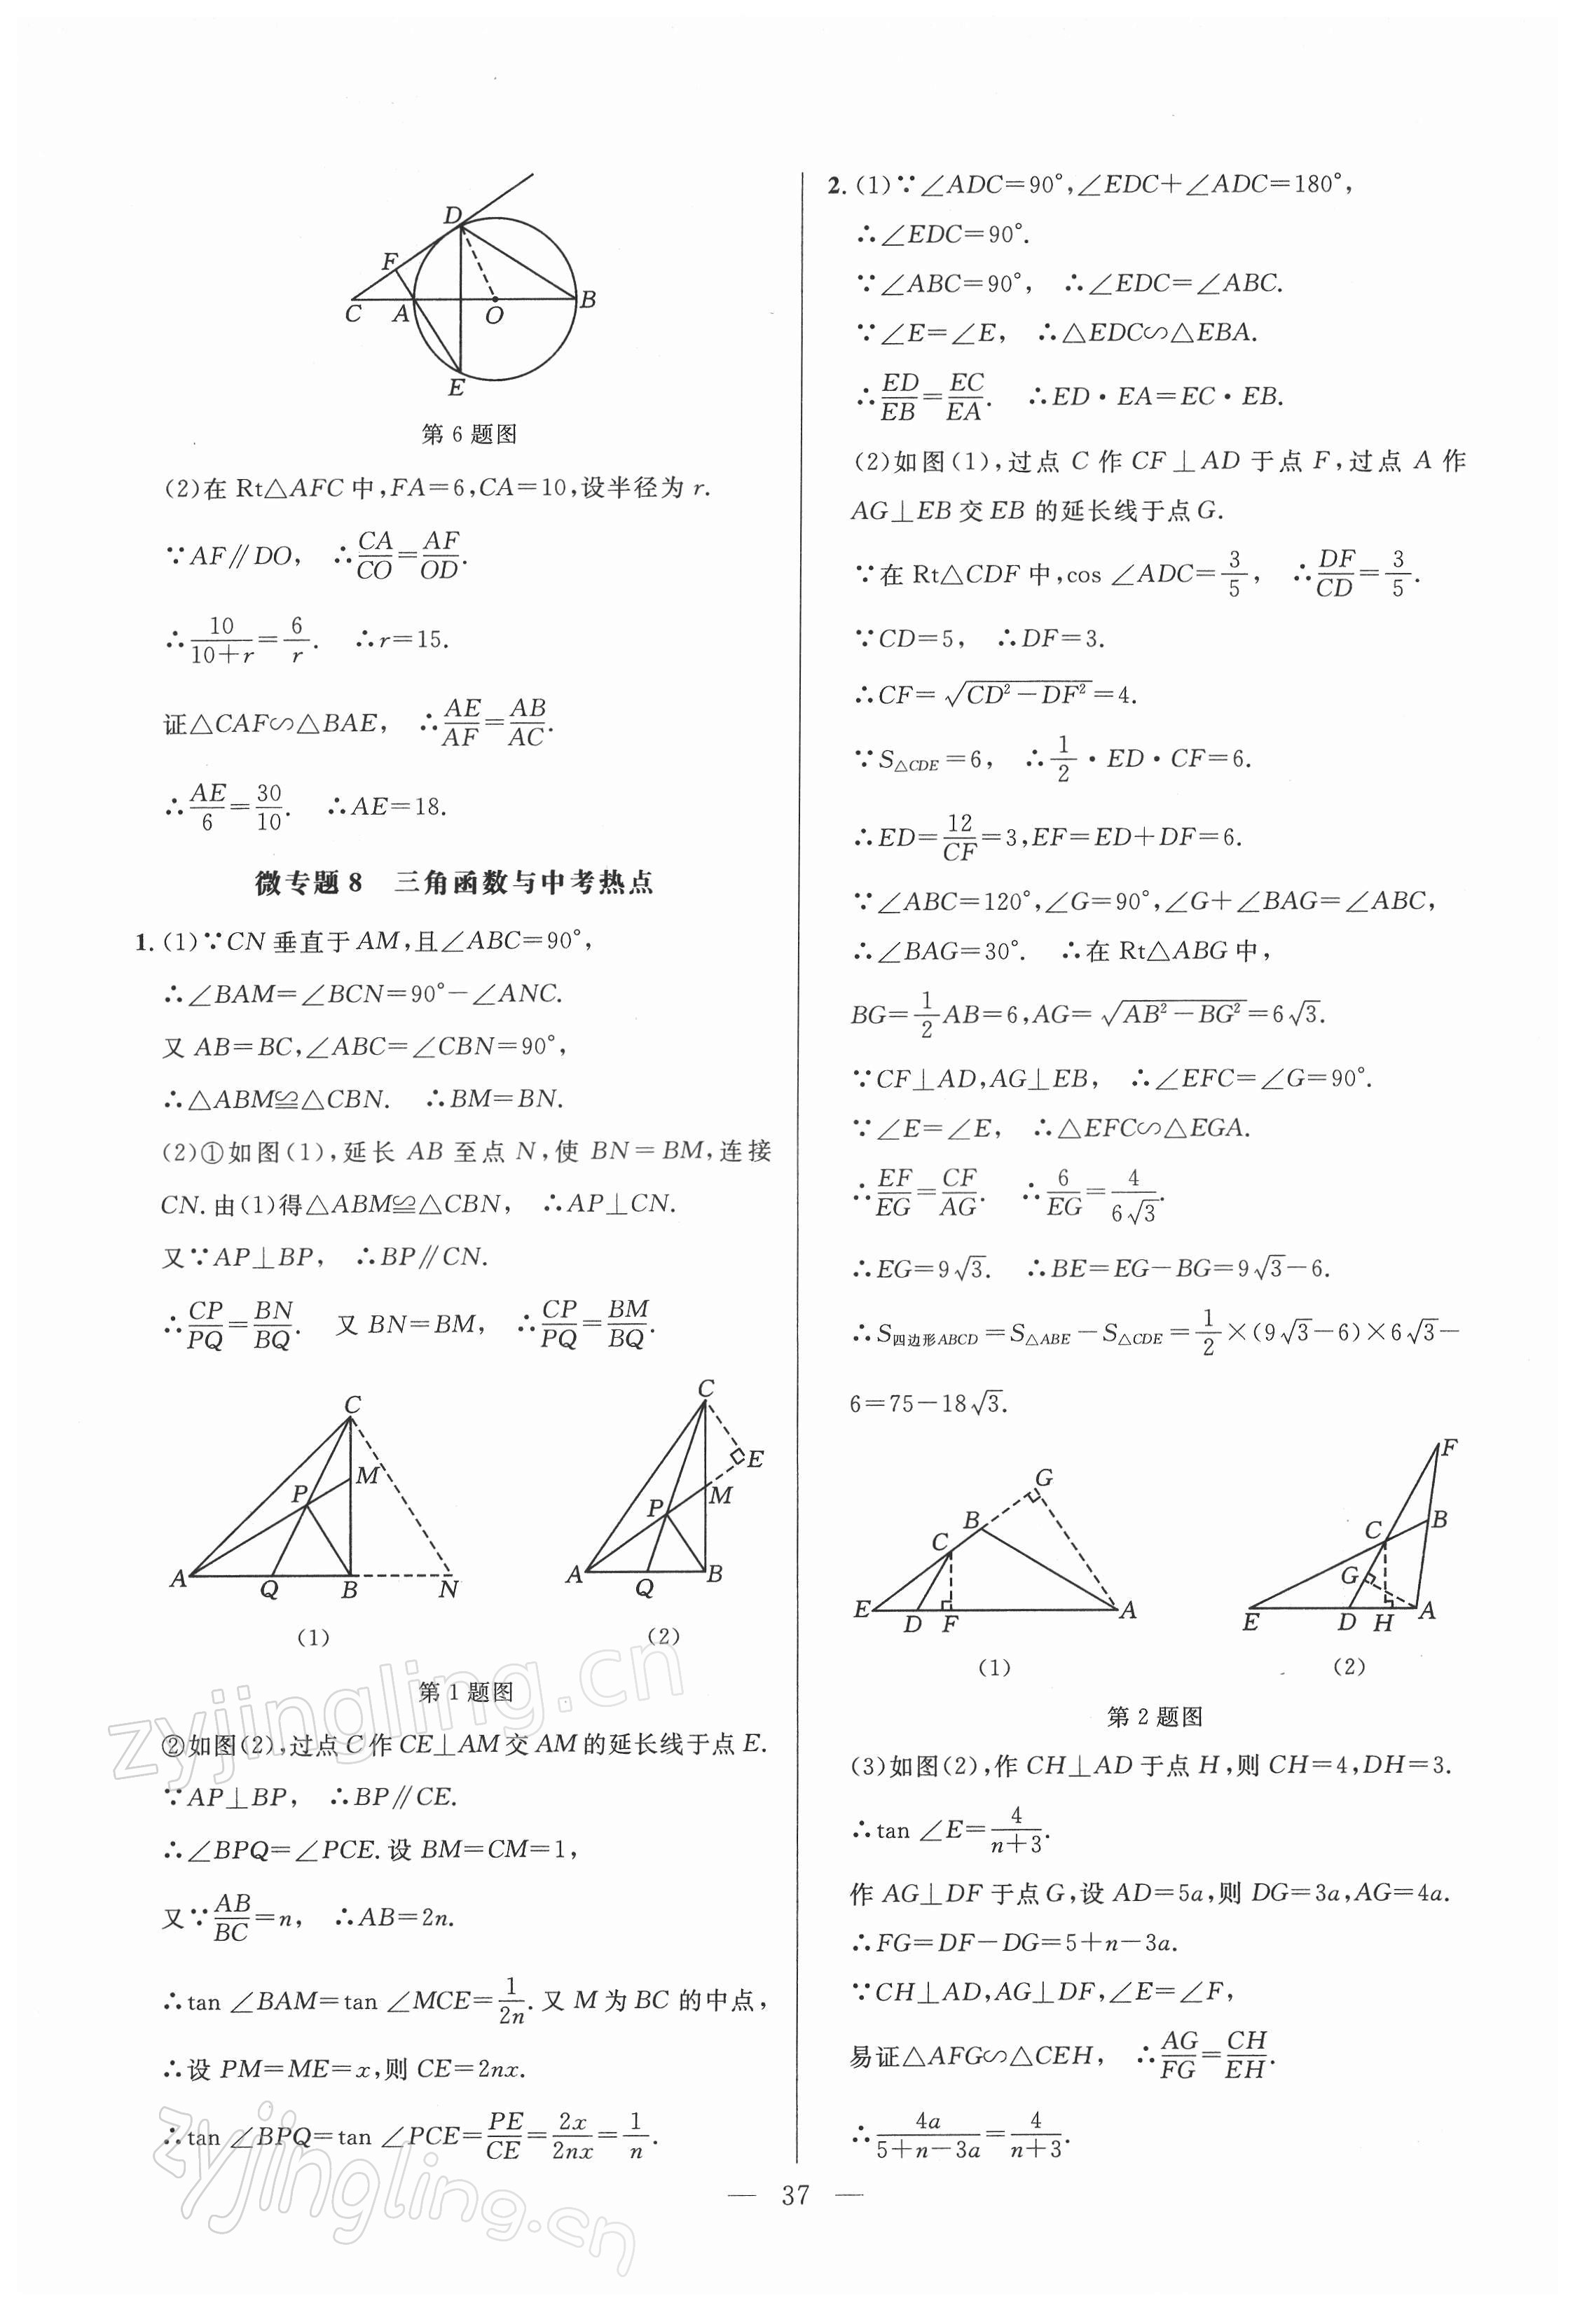 D
F
C
A
O
B
E
第6题图
(2)在 Rt△AFC 中,FA=6,CA=10,设半径为 r.
∵AF∥DO, ∴CA/CO=AF/OD.
∴10/(10+r)=6/r. ∴r=15.
证△CAF∽△BAE, ∴AE/AF=AB/AC.
∴AE/6=30/10. ∴AE=18.
微专题8 三角函数与中考热点
1.(1)∵CN 垂直于 AM,且∠ABC=90°,
∴∠BAM=∠BCN=90°−∠ANC.
又 AB=BC,∠ABC=∠CBN=90°,
∴△ABM≌△CBN. ∴BM=BN.
(2)①如图(1),延长 AB 至点 N,使 BN=BM,连接
CN.由(1)得△ABM≌△CBN, ∴AP⊥CN.
又∵AP⊥BP, ∴BP∥CN.
∴CP/PQ=BN/BQ. 又 BN=BM, ∴CP/PQ=BM/BQ.
C
M
P
A
Q
B
N
(1)
C
E
M
P
A
Q
B
(2)
第1题图
②如图(2),过点 C 作 CE⊥AM 交 AM 的延长线于点 E.
∵AP⊥BP, ∴BP∥CE.
∴∠BPQ=∠PCE.设 BM=CM=1,
又∵AB/BC=n, ∴AB=2n.
∴tan ∠BAM=tan ∠MCE=1/2n.又 M 为 BC 的中点,
∴设 PM=ME=x,则 CE=2nx.
∴tan ∠BPQ=tan ∠PCE=PE/CE=2x/2nx=1/n.
2.(1)∵∠ADC=90°,∠EDC+∠ADC=180°,
∴∠EDC=90°.
∵∠ABC=90°, ∴∠EDC=∠ABC.
∵∠E=∠E, ∴△EDC∽△EBA.
∴ED/EB=EC/EA. ∴ED·EA=EC·EB.
(2)如图(1),过点 C 作 CF⊥AD 于点 F,过点 A 作
AG⊥EB 交 EB 的延长线于点 G.
∵在 Rt△CDF 中,cos ∠ADC=3/5, ∴DF/CD=3/5.
∵CD=5, ∴DF=3.
∴CF=√(CD²−DF²)=4.
∵S△CDE=6, ∴1/2·ED·CF=6.
∴ED=12/CF=3,EF=ED+DF=6.
∵∠ABC=120°,∠G=90°,∠G+∠BAG=∠ABC,
∴∠BAG=30°. ∴在 Rt△ABG 中,
BG=1/2AB=6,AG=√(AB²−BG²)=6√3.
∵CF⊥AD,AG⊥EB, ∴∠EFC=∠G=90°.
∵∠E=∠E, ∴△EFC∽△EGA.
∴EF/EG=CF/AG. ∴6/EG=4/6√3.
∴EG=9√3. ∴BE=EG−BG=9√3−6.
∴S四边形ABCD=S△ABE−S△CDE=1/2×(9√3−6)×6√3−
6=75−18√3.
G
B
C
E
D
F
A
(1)
F
B
C
G
E
D
H
A
(2)
第2题图
(3)如图(2),作 CH⊥AD 于点 H,则 CH=4,DH=3.
∴tan ∠E=4/(n+3).
作 AG⊥DF 于点 G,设 AD=5a,则 DG=3a,AG=4a.
∴FG=DF−DG=5+n−3a.
∵CH⊥AD,AG⊥DF,∠E=∠F,
易证△AFG∽△CEH, ∴AG/FG=CH/EH.
∴4a/(5+n−3a)=4/(n+3).
— 37 —
zyjingling.cn
zyjingling.cn